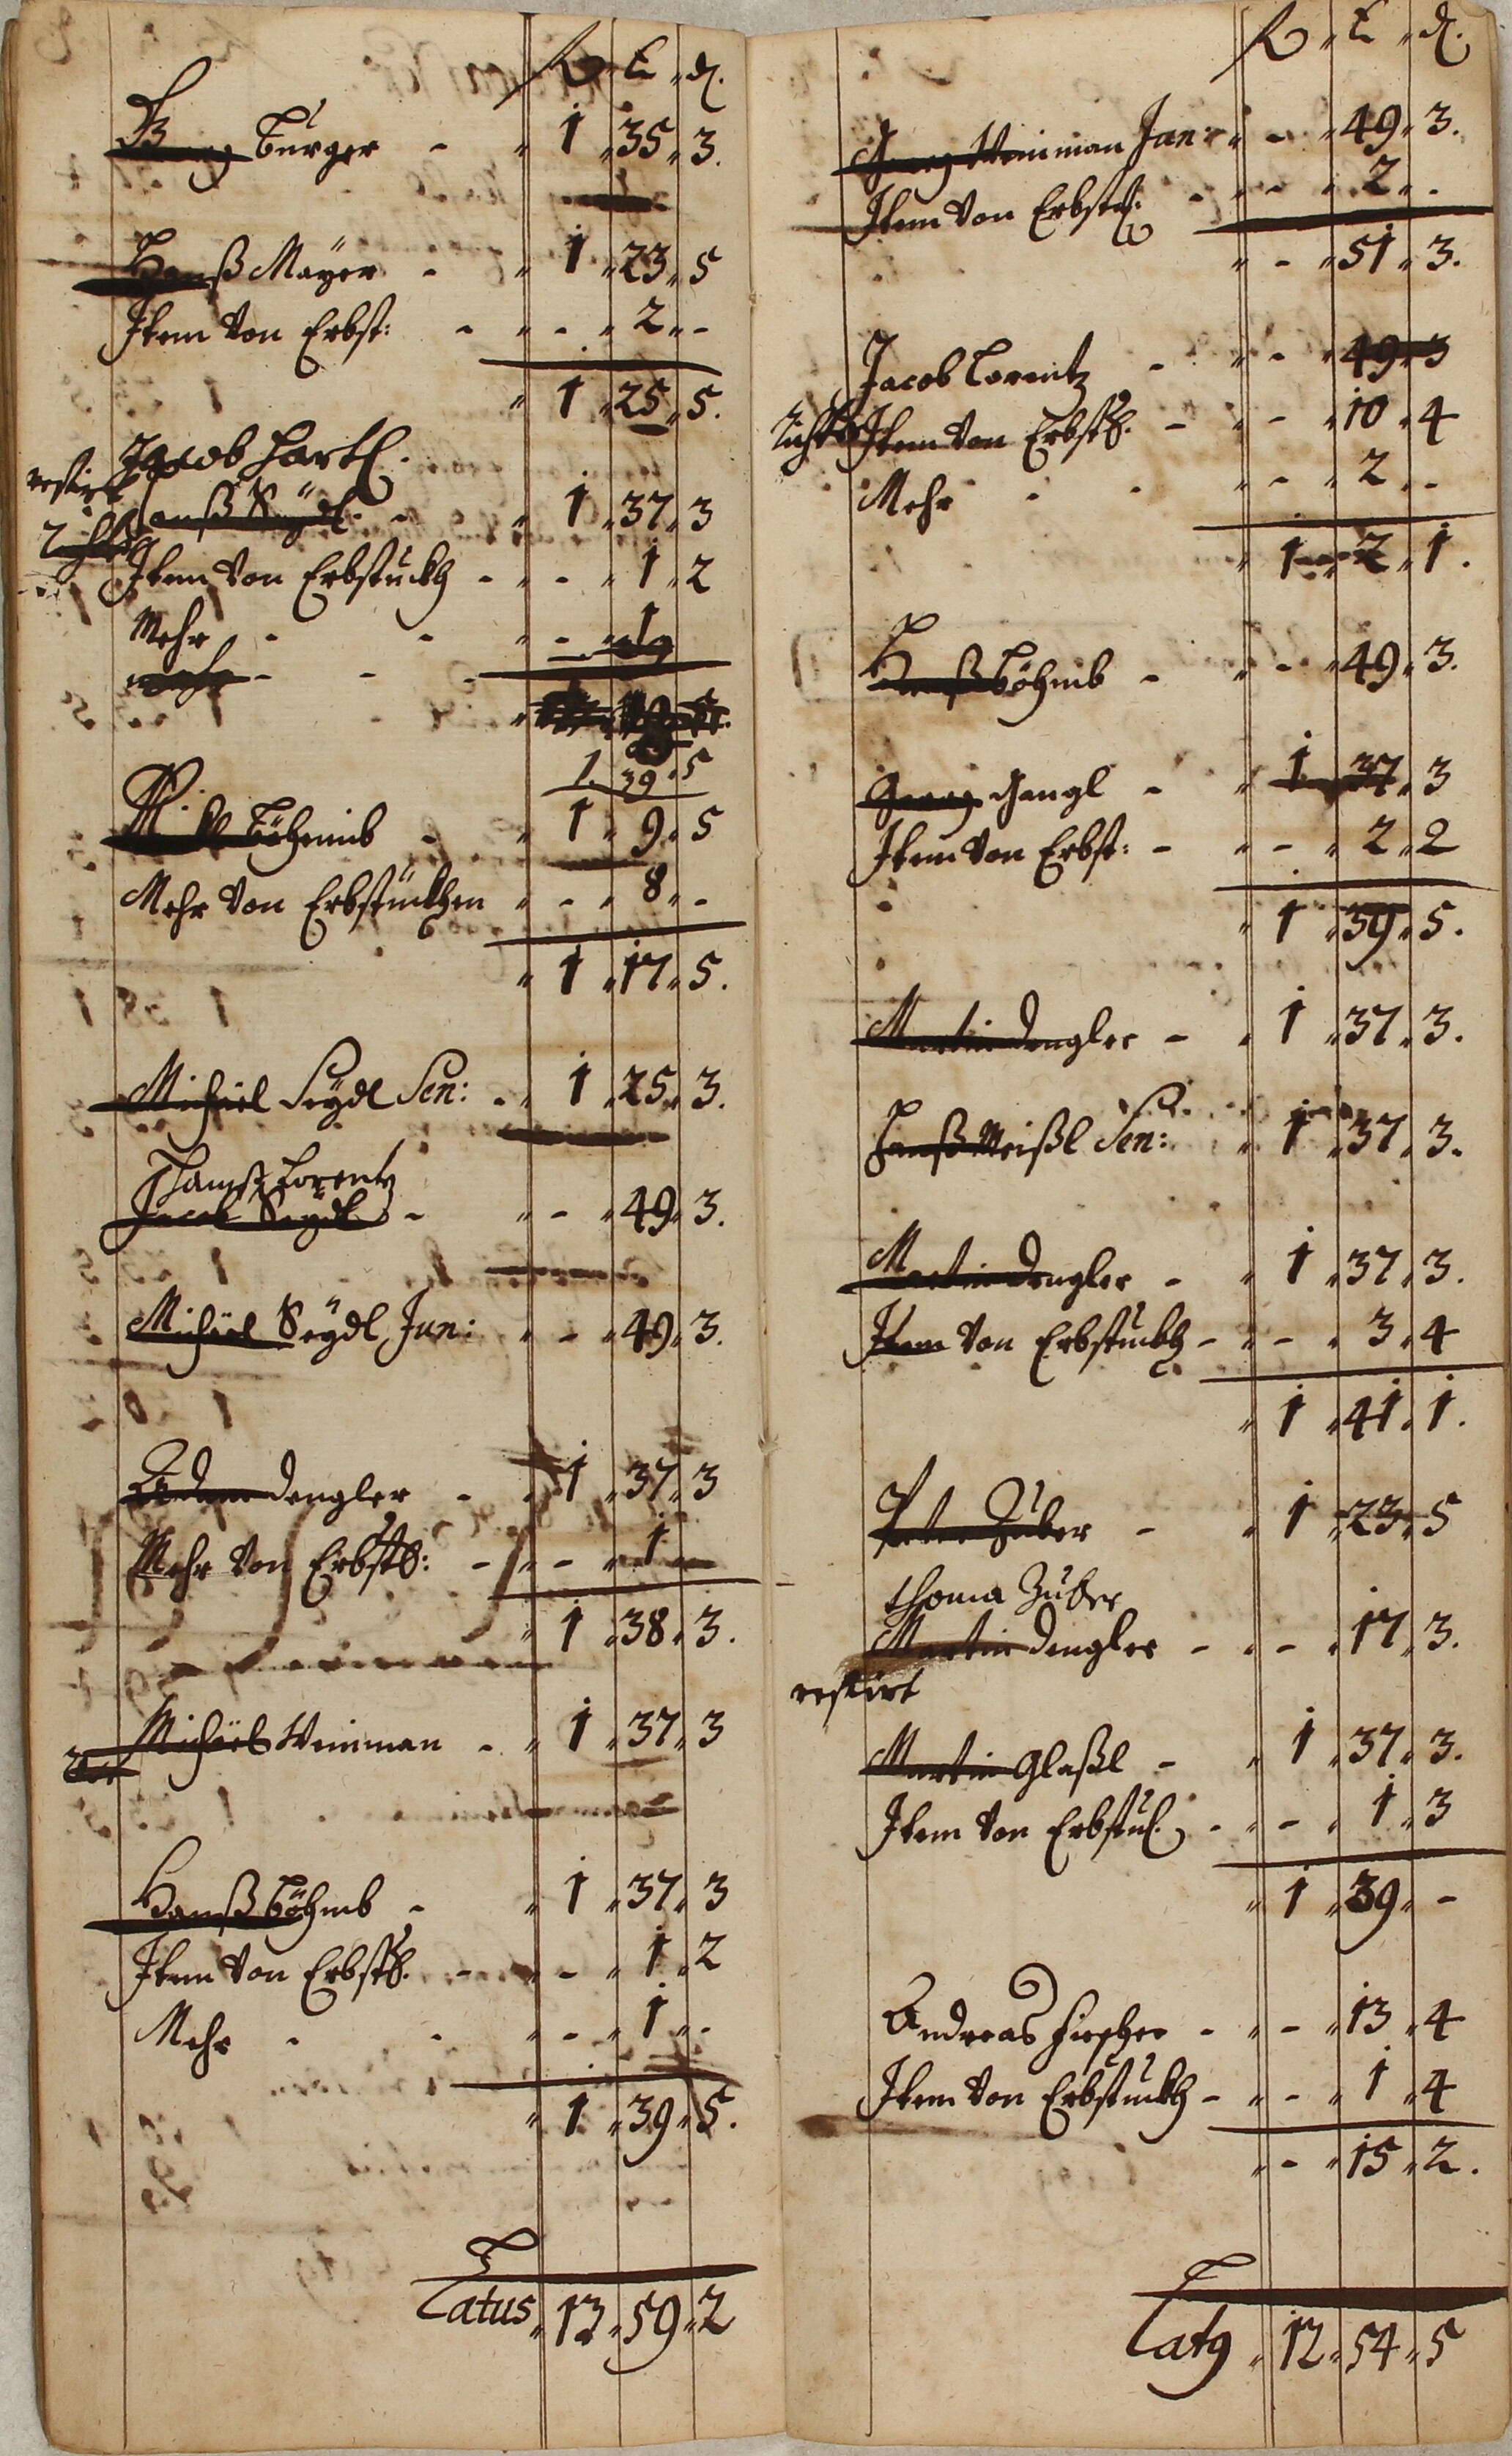 fl „ kr „ d.
Georg Bürger - „ 1 „ 35 „ 3.
Hanß Mäyer - „ 1 „ 23 „ 5
Item von Erbst: - „ - „ 2 „ -
„ 1 „ 25 „ 5.
Jacob Hartl.
restirt Hanß Seÿdl - „ 1 „ 37 „ 3
Item von Erbstuckh - „ - „ 1 „ 2
Mehr - - „ - „ 1
mehr - - -
1. 39. 5
Böhmb - „ 1 „ 9 „ 5
Mehr von Erbstückhen „ - „ 8 „ -
„ 1 „ 17 „ 5.
Michäel Seÿdl Sen: - „ 1 „ 25 „ 3.
Hanß Lorentz
Jacob Seÿdl - „ - „ 49 „ 3.
Michäel Seÿdl Jun: „ - „ 49 „ 3.
Adam Dengler - „ 1 „ 37 „ 3
Mehr von Erbst: - „ - „ 1 „ -
„ 1 „ 38 „ 3.
Michäel Weinman - „ 1 „ 37 „ 3
Hanß Böhmb - „ 1 „ 37 „ 3
Item von Erbst. - „ - „ 1 „ 2
Mehr - - „ - „ 1 „ -
„ 1 „ 39 „ 5.
Latus „ 13 „ 59 „ 2
fl „ kr „ d.
Georg Weinman Jun: „ - „ 49 „ 3.
Item von Erbst: - „ - „ 2 „ -
„ - „ 51 „ 3.
Jacob Lorentz - „ - „ 49 „ 3
Item von Erbst. - „ - „ 10 „ 4
Mehr - - „ - „ 2 „ -
„ 1 „ 2 „ 1.
Hanß Böhmb - „ - „ 49 „ 3.
Georg Gangl - „ 1 „ 37 „ 3
Item von Erbst: - „ - „ 2 „ 2
„ 1 „ 39 „ 5.
Martin Dengler - „ 1 „ 37 „ 3.
Hanß Meißl Sen: „ 1 „ 37 „ 3.
Martin Dengler - „ 1 „ 37 „ 3.
Item von Erbstuckh - „ - „ 3 „ 4
„ 1 „ 41 „ 1.
Peter Zuber - „ 1 „ 23 „ 5
thoma Zuber
Martin Dengler - „ - „ 17 „ 3.
restirt
Martin Glaßl - „ 1 „ 37 „ 3.
Item von Erbstuk. - „ - „ 1 „ 3
„ 1 „ 39 „ -
Andreas Fischer - „ - „ 13 „ 4
Item von Erbstuckh - „ - „ 1 „ 4
„ - „ 15 „ 2.
Lat9 „ 12 „ 54 „ 5